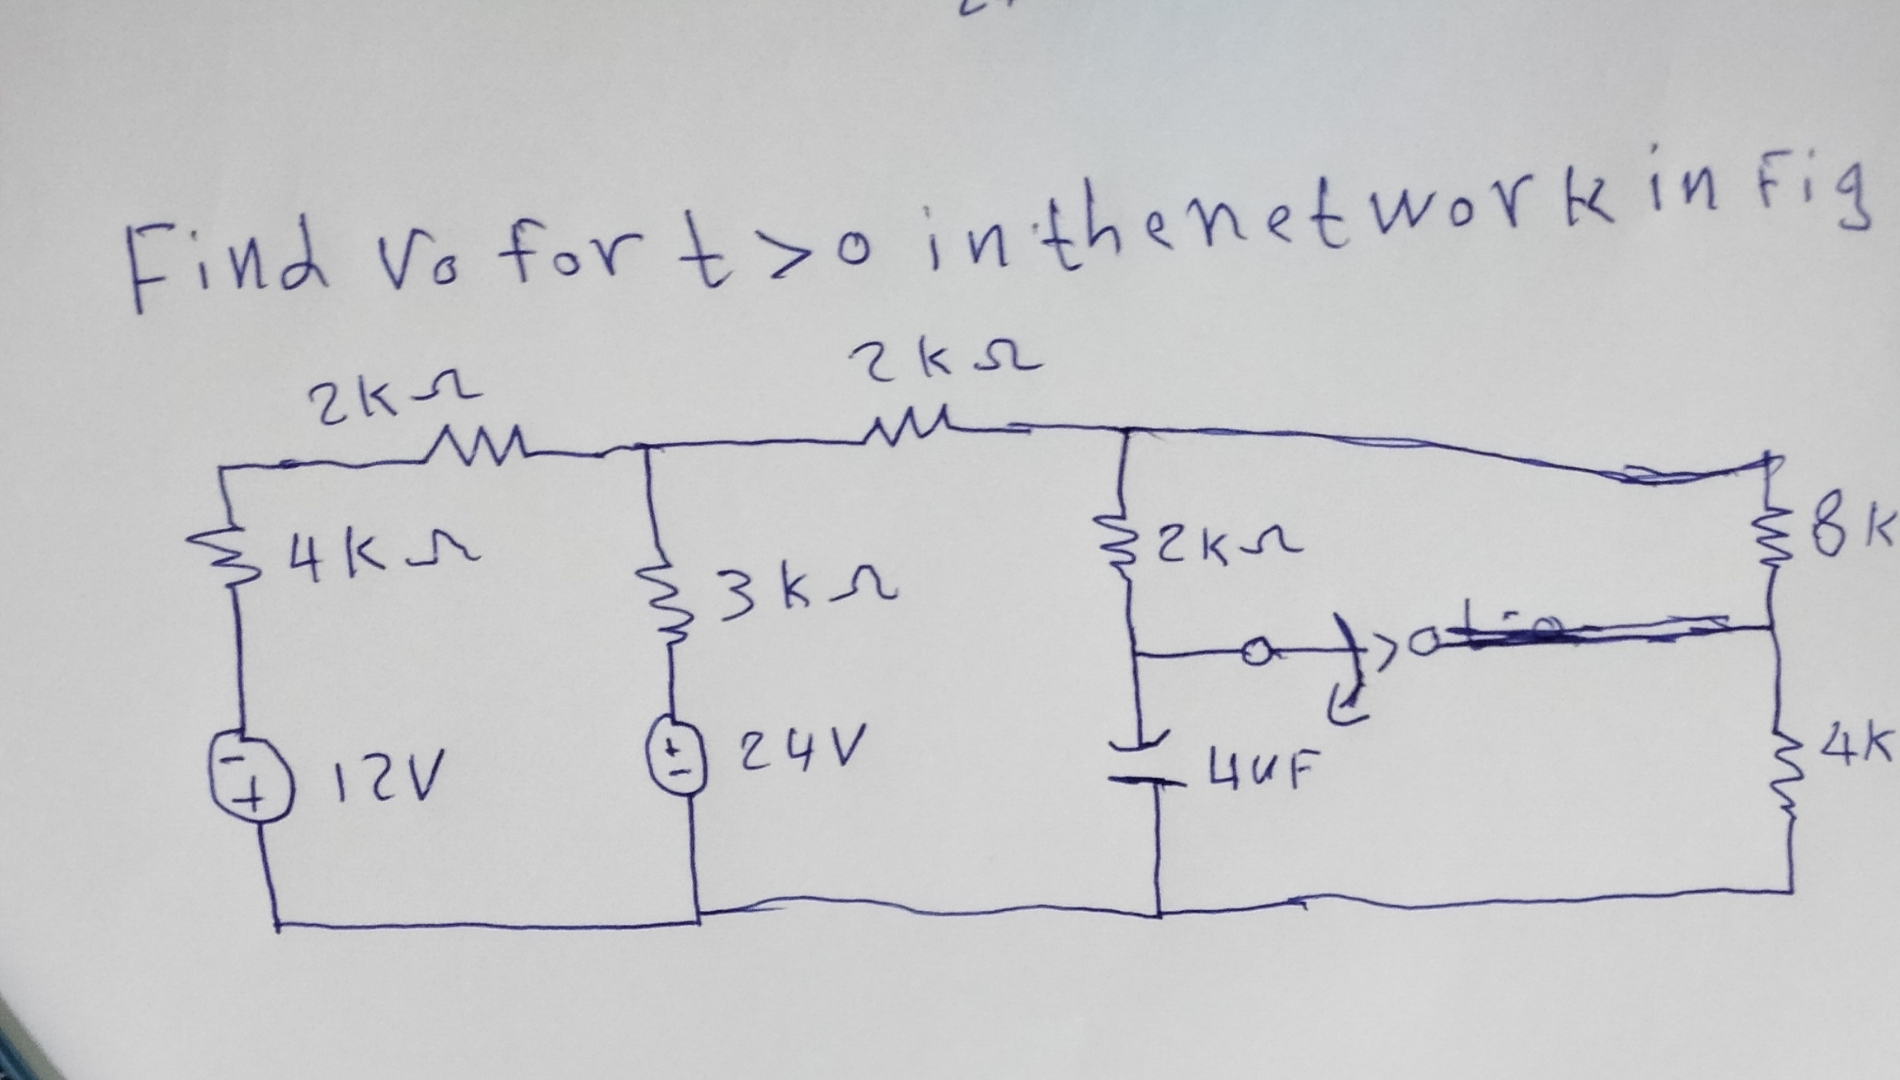 Find vo for t>0 in the network in Fig
2kΩ
2kΩ
4kΩ
3kΩ
2kΩ
8k
- + 12V
+ - 24V
4uF
4k